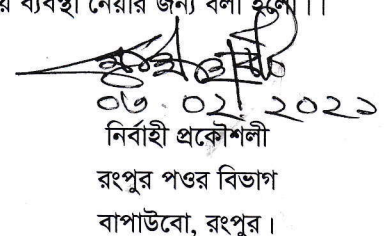 র ব্যবস্থা নেয়ার জন্য বলা হলো।।
০৩.০২.২০২১
নির্বাহী প্রকৌশলী
রংপুর পওর বিভাগ
বাপাউবো, রংপুর।